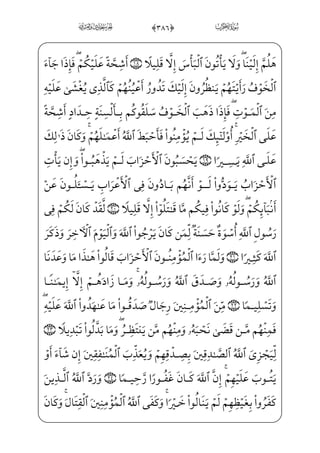 ﴿٣٨٦﴾
هَلُمَّ إِلَيْنَا ۖ وَلَا يَأْتُونَ ٱلْبَأْسَ إِلَّا قَلِيلًا ١٨ أَشِحَّةً عَلَيْكُمْ ۖ فَإِذَا جَآءَ
ٱلْخَوْفُ رَأَيْتَهُمْ يَنظُرُونَ إِلَيْكَ تَدُورُ أَعْيُنُهُمْ كَٱلَّذِى يُغْشَىٰ عَلَيْهِ
مِنَ ٱلْمَوْتِ ۖ فَإِذَا ذَهَبَ ٱلْخَوْفُ سَلَقُوكُم بِأَلْسِنَةٍ حِدَادٍ أَشِحَّةً
عَلَى ٱلْخَيْرِ ۚ أُو۟لَـٰٓئِكَ لَمْ يُؤْمِنُوا۟ فَأَحْبَطَ ٱللَّهُ أَعْمَـٰلَهُمْ ۚ وَكَانَ ذَٰلِكَ
عَلَى ٱللَّهِ يَسِيرًا ١٩ يَحْسَبُونَ ٱلْأَحْزَابَ لَمْ يَذْهَبُوا۟ ۖ وَإِن يَأْتِ
ٱلْأَحْزَابُ يَوَدُّوا۟ لَوْ أَنَّهُم بَادُونَ فِى ٱلْأَعْرَابِ يَسْـَٔلُونَ عَنْ
أَنۢبَآئِكُمْ ۖ وَلَوْ كَانُوا۟ فِيكُم مَّا قَـٰتَلُوٓا۟ إِلَّا قَلِيلًا ٢٠ لَّقَدْ كَانَ لَكُمْ فِى
رَسُولِ ٱللَّهِ أُسْوَةٌ حَسَنَةٌ لِّمَن كَانَ يَرْجُوا۟ ٱللَّهَ وَٱلْيَوْمَ ٱلْـَٔاخِرَ وَذَكَرَ
ٱللَّهَ كَثِيرًا ٢١ وَلَمَّا رَءَا ٱلْمُؤْمِنُونَ ٱلْأَحْزَابَ قَالُوا۟ هَـٰذَا مَا وَعَدَنَا
ٱللَّهُ وَرَسُولُهُۥ وَصَدَقَ ٱللَّهُ وَرَسُولُهُۥ ۚ وَمَا زَادَهُمْ إِلَّآ إِيمَـٰنًا
وَتَسْلِيمًا ٢٢ مِّنَ ٱلْمُؤْمِنِينَ رِجَالٌ صَدَقُوا۟ مَا عَـٰهَدُوا۟ ٱللَّهَ عَلَيْهِ ۖ
فَمِنْهُم مَّن قَضَىٰ نَحْبَهُۥ وَمِنْهُم مَّن يَنتَظِرُ ۖ وَمَا بَدَّلُوا۟ تَبْدِيلًا ٢٣
لِّيَجْزِىَ ٱللَّهُ ٱلصَّـٰدِقِينَ بِصِدْقِهِمْ وَيُعَذِّبَ ٱلْمُنَـٰفِقِينَ إِن شَآءَ أَوْ
يَتُوبَ عَلَيْهِمْ ۚ إِنَّ ٱللَّهَ كَانَ غَفُورًا رَّحِيمًا ٢٤ وَرَدَّ ٱللَّهُ ٱلَّذِينَ
كَفَرُوا۟ بِغَيْظِهِمْ لَمْ يَنَالُوا۟ خَيْرًا ۚ وَكَفَى ٱللَّهُ ٱلْمُؤْمِنِينَ ٱلْقِتَالَ ۚ وَكَانَ